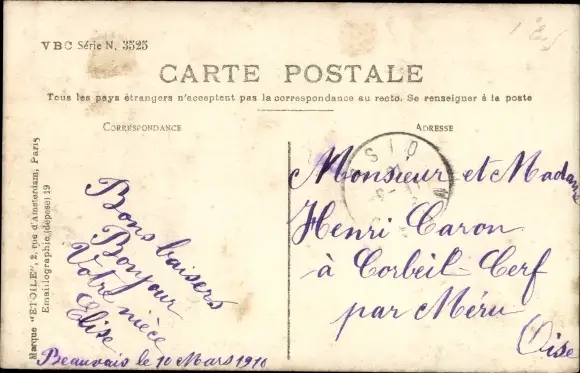 VBC Série N. 3525
CARTE POSTALE
Tous les pays étrangers n'acceptent pas la correspondance au recto. Se renseigner à la poste
CORRESPONDANCE
ADRESSE
Marque "ETOILE", 2, rue d'Amsterdam, Paris
Emailographie (déposé) 19
Bons baisers
Bonjour
Votre nièce
Elise
Beauvais le 10 Mars 1910
Monsieur et Madame
Henri Caron
à Corbeil-Cerf
par Méru
Oise